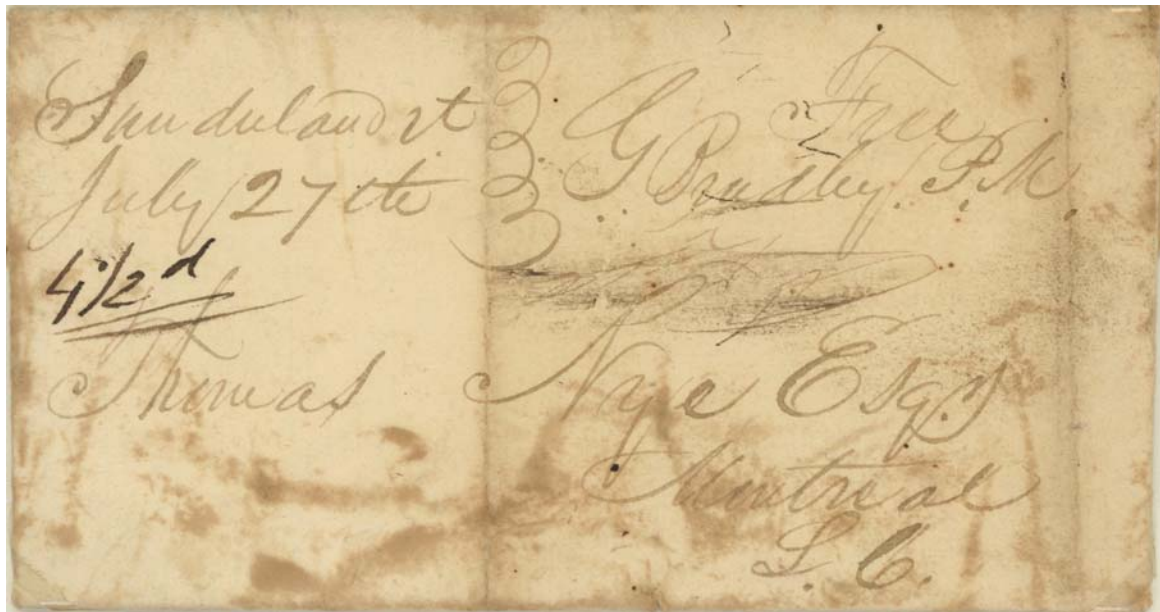 Sunduland vt
July 27th
4 1/2 d
Free
G Bradley. P.M.
Thomas Nye Esqr
Montreal
L. C.